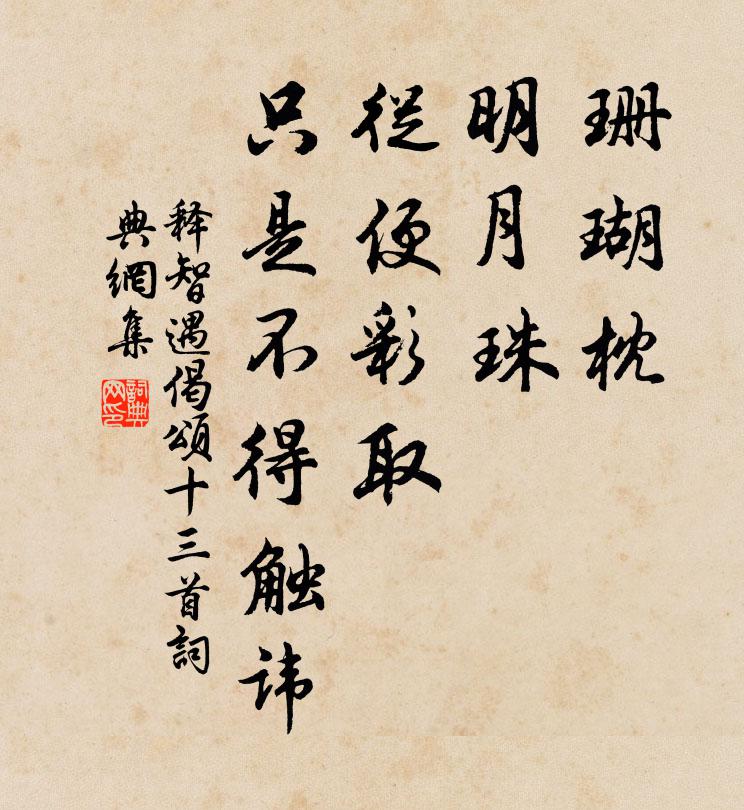 珊瑚枕
明月珠
從便彩取
只是不得触讳
释智遇偈頌十三首詞
典網集
詞典
网印